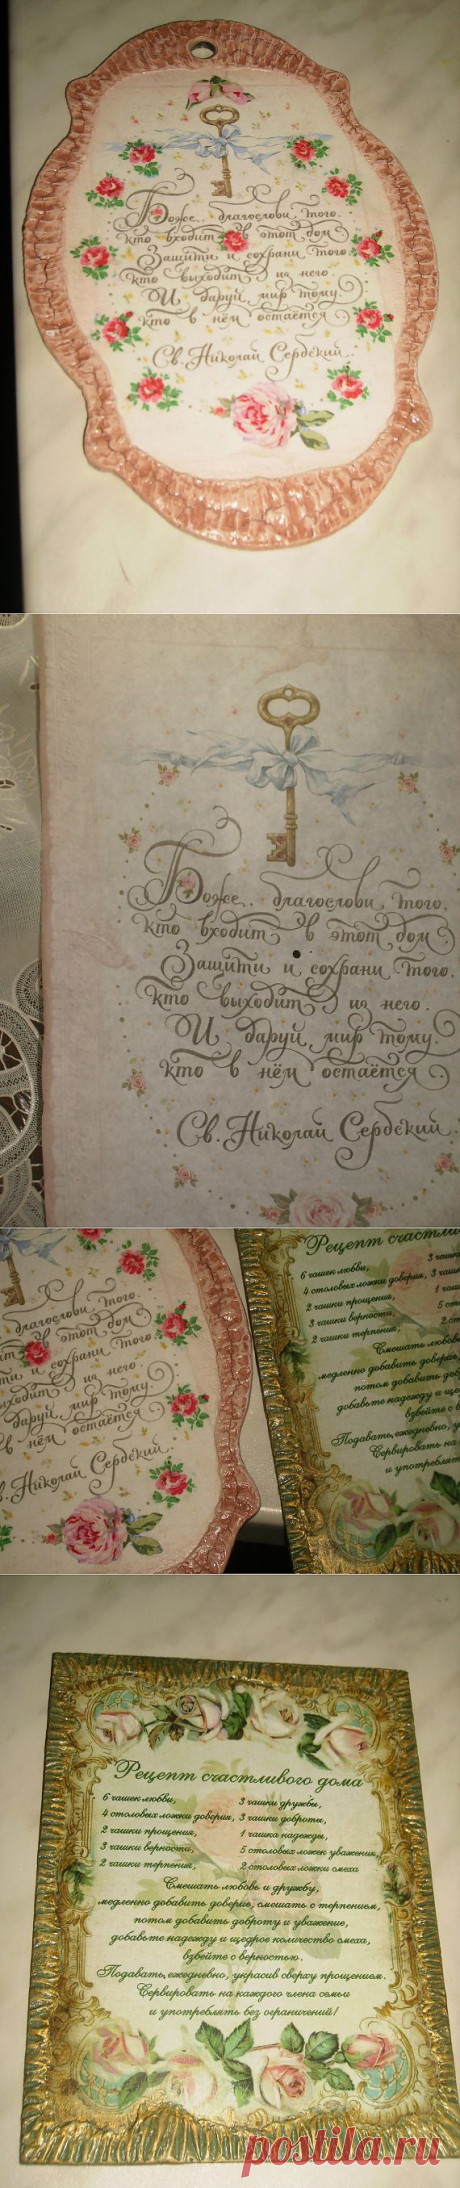 Боже, благослови того,
кто входит в этот дом.
Защити и сохрани того,
кто выходит из него.
И даруй мир тому,
кто в нём остаётся
Св. Николай Сербский.
Боже, благослови того,
кто входит в этот дом.
Защити и сохрани того,
кто выходит из него.
И даруй мир тому,
кто в нём остаётся
Св. Николай Сербский.
благослови того.
в этом дом
и сохрани того
выходит из него.
даруй мир тому,
в нём остаётся
в. Николай Сербский.
Рецепт счастли
6 чашек любви,
4 столовых ложки доверия,
2 чашки прощения,
3 чашки верности,
2 чашки терпения,
Смешать любовь
медленно добавить доверие,
потом добавить
добавьте надежду и ще
взбейте с
Подавать, ежедневно, у
Сервировать на
и употреблят
Рецепт счастливого дома
6 чашек любви,
4 столовых ложки доверия,
2 чашки прощения,
3 чашки верности,
2 чашки терпения,
3 чашки дружбы,
3 чашки доброты,
1 чашка надежды,
5 столовых ложек уважения,
2 столовых ложки смеха
Смешать любовь и дружбу,
медленно добавить доверие, смешать с терпением,
потом добавить доброту и уважение,
добавьте надежду и щедрое количество смеха,
взбейте с верностью.
Подавать, ежедневно, украсив сверху прощением.
Сервировать на каждого члена семьи
и употреблять без ограничений!
postila.ru